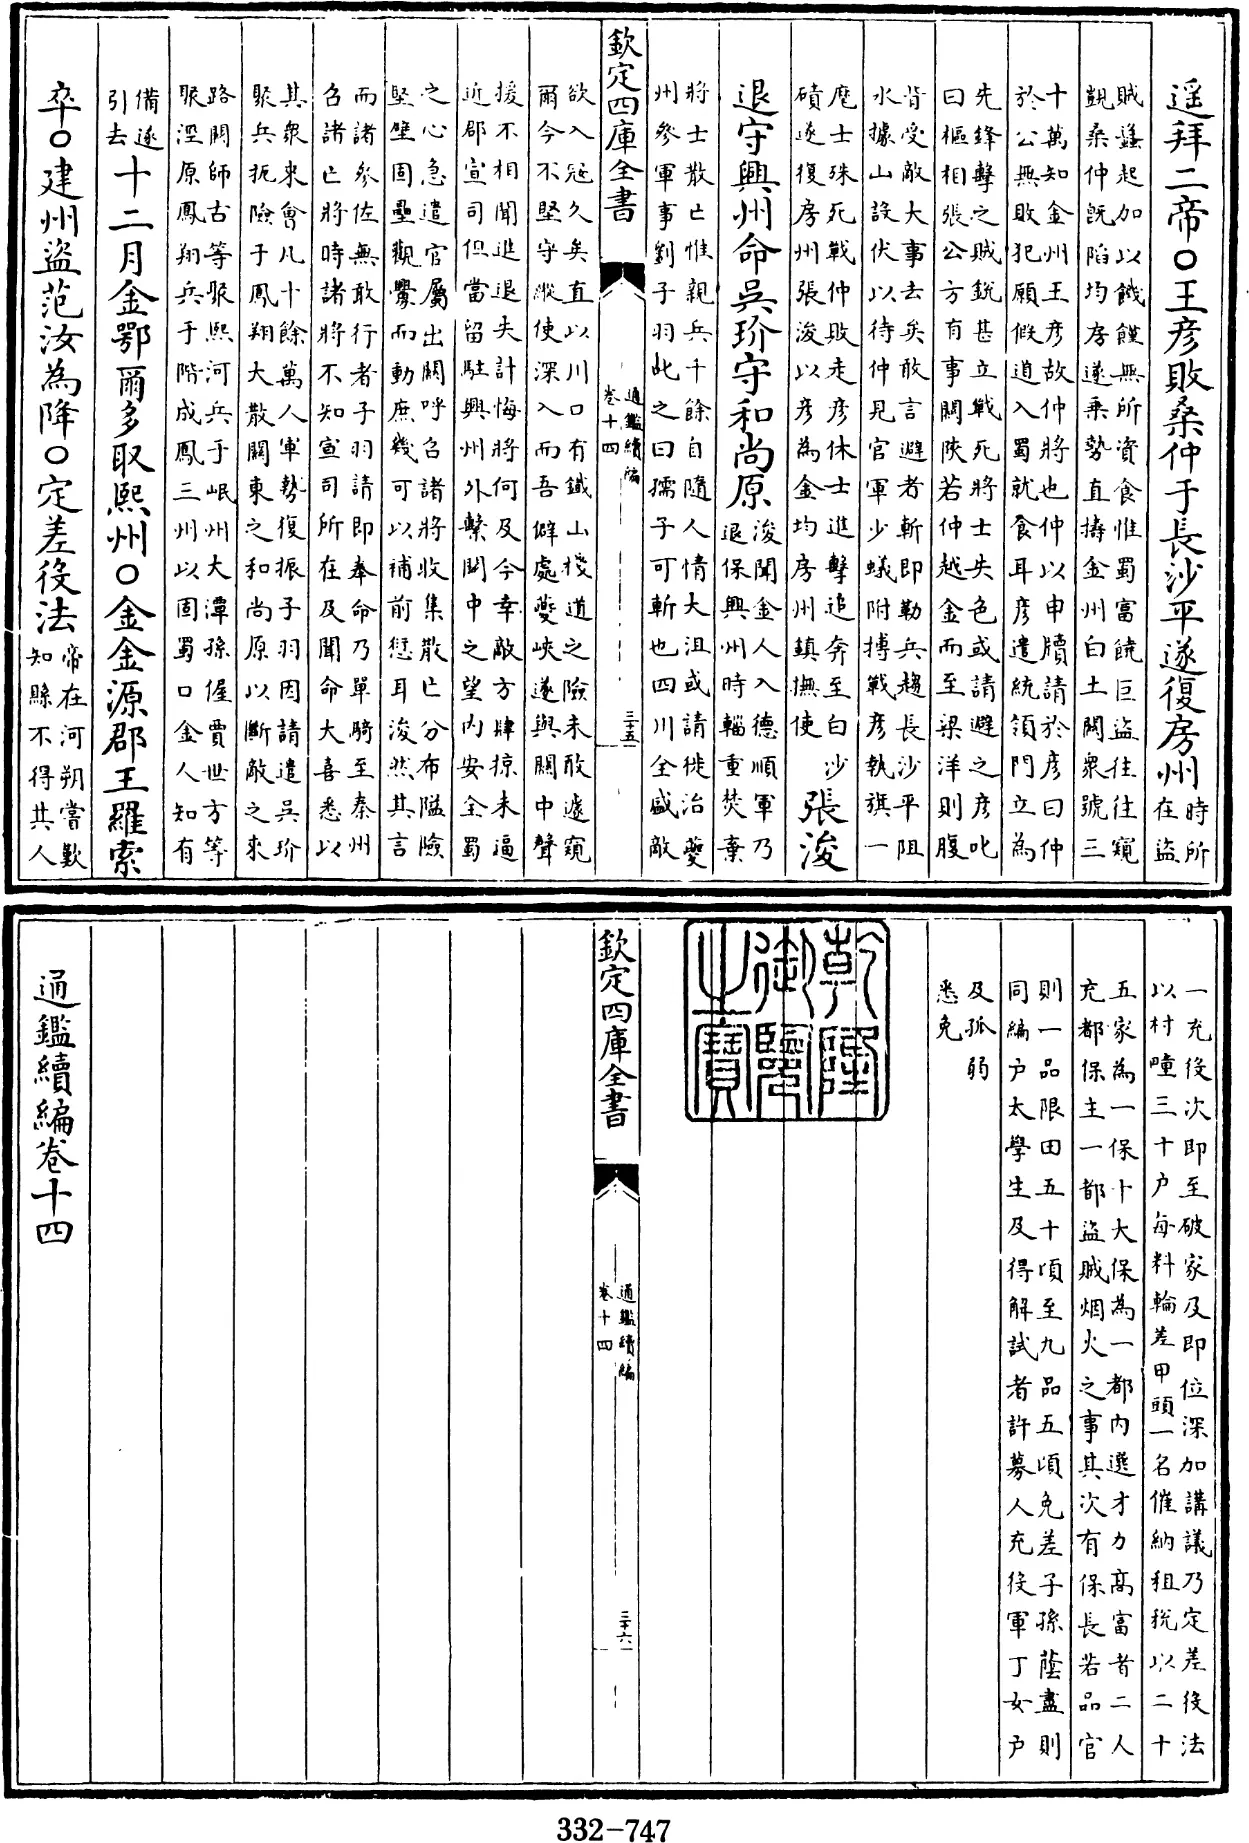 遥拜二帝〇王彥敗桑仲于長沙平遂復房州時所
在盜
賊蠭起加以饑饉無所資食惟蜀富饒巨盜往往窺
覬桑仲既陷均房遂乗勢直擣金州白土關衆號三
十萬知金州王彥故仲將也仲以申牘請於彥曰仲
於公無敢犯願假道入蜀就食耳彥遣統領門立為
先鋒擊之賊銳甚立戰死將士失色或請避之彥叱
曰樞相張公方有事關陜若仲越金而至梁洋則腹
背受敵大事去矣敢言避者斬即勒兵趨長沙平阻
水據山設伏以待仲見官軍少蟻附搏戰彥執旗一
麾士殊死戰仲敗走彥休士進擊追奔至白沙
磧遂復房州張浚以彥為金均房州鎮撫使
張浚
退守興州命吳玠守和尚原浚聞金人入德順軍乃
退保興州時輜重焚棄
將士散亡惟親兵千餘自隨人情大沮或請徙治夔
州參軍事劉子羽叱之曰孺子可斬也四川全盛敵
欽定四庫全書
通鑑續編
卷十四
三十五
欲入冦久矣直以川口有鐵山棧道之險未敢遽窺
爾今不堅守縱使深入而吾僻處夔峽遂與關中聲
援不相聞進退失計悔將何及今幸敵方肆掠未逼
近郡宣司但當留駐興州外繫關中之望内安全蜀
之心急遣官屬出關呼召諸將收集散亡分布隘險
堅壁固壘觀釁而動庶幾可以補前愆耳浚然其言
而諸參佐無敢行者子羽請即奉命乃單騎至秦州
召諸亡將時諸將不知宣司所在及聞命大喜悉以
其衆來會凡十餘萬人軍勢復振子羽因請遣吳玠
聚兵扼險于鳳翔大散關東之和尚原以斷敵之來
路關師古等聚熙河兵于岷州大潭孫偓賈世方等
聚涇原鳳翔兵于階成鳳三州以固蜀口金人知有
備遂
引去
十二月金鄂爾多取熙州〇金金源郡王羅索
卒〇建州盜范汝為降〇定差役法帝在河朔嘗歎
知縣不得其人
一充役次即至破家及即位深加講議乃定差役法
以村疃三十户每料輪差甲頭一名催納租税以二十
五家為一保十大保為一都内選才力高富者二人
充都保主一都盜賊烟火之事其次有保長若品官
則一品限田五十頃至九品五頃免差子孫蔭盡則
同編户太學生及得解試者許募人充役軍丁女户
及孤弱
悉免
乾隆御覽之寶
欽定四庫全書
通鑑續編
卷十四
三十六
通鑑續編卷十四
332-747